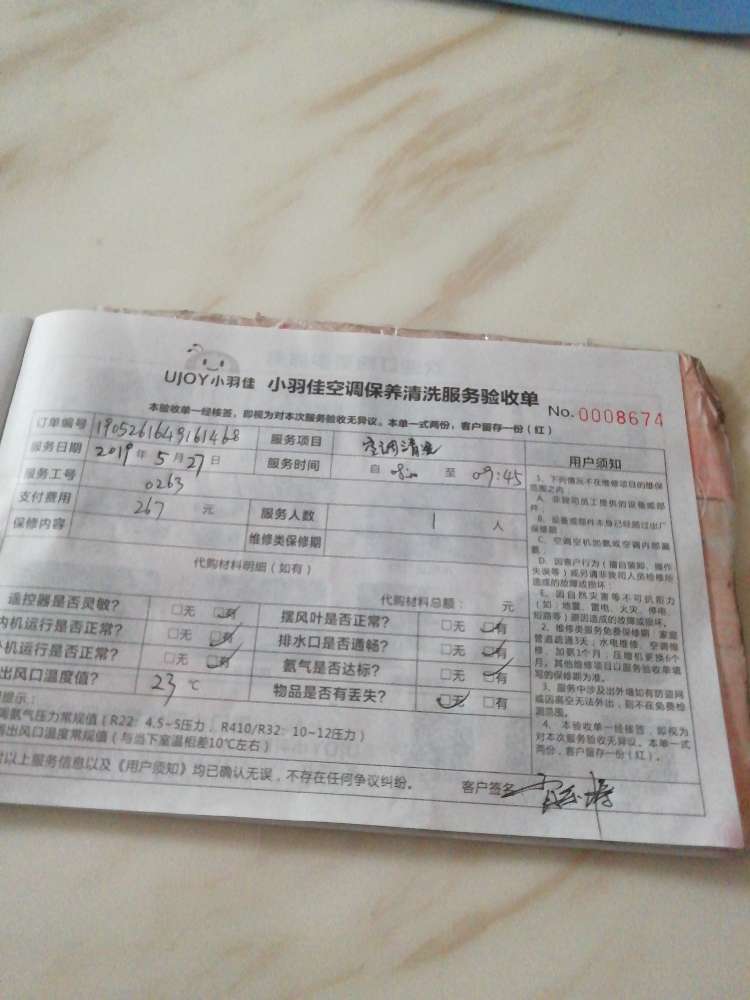 UJOY小羽佳 小羽佳空调保养清洗服务验收单
本验收单一经核签，即视为对本次服务验收无异议。本单一式两份，客户留存一份（红）
No.0008674
订单编号 1905261649161468 服务项目 空调清洗
服务日期 2019年5月27日 服务时间 自 至 09:45
服务工号 0263
支付费用 267 元 服务人数 1 人
保修内容 维修类保修期
代购材料明细（如有）
代购材料总额： 元
遥控器是否灵敏？ □无 □有 摆风叶是否正常？ □无 □有
内机运行是否正常？ □无 □有 排水口是否通畅？ □无 □有
外机运行是否正常？ □无 □有 氨气是否达标？ □无 □有
出风口温度值？ 23 ℃ 物品是否有丢失？ □无 □有
提示：
氨气压力常规值（R22：4.5~5压力，R410/R32：10~12压力）
出风口温度常规值（与当下室温相差10℃左右）
以上服务信息以及《用户须知》均已确认无误，不存在任何争议纠纷。
客户签名
用户须知
1、下列情况不在维修项目的维保
范围之内：
A、非我司员工提供的设备或部
件；
B、设备或部件本身已经超过出厂
保修期；
C、空调空机加氨或空调内部漏
氨；
D、因客户行为（擅自装卸、操作
失误等）或另请非我司人员检修所
造成的故障或损坏；
E、因自然灾害等不可抗力
（如：地震、雷电、火灾、停电、
短路等）原因造成的故障或损坏。
2、维修类服务免费保修期：家庭
管道疏通3天；水电维修、空调维
修、加氨1个月；压缩机更换6个
月。其他维修项目以服务验收单填
写的保修期为准。
3、服务中涉及出外墙如有防盗网
或因高空无法外出，则不在免费检
测范围。
4、本验收单一经核签，即视为
对本次服务验收无异议。本单一式
两份，客户留存一份（红）。